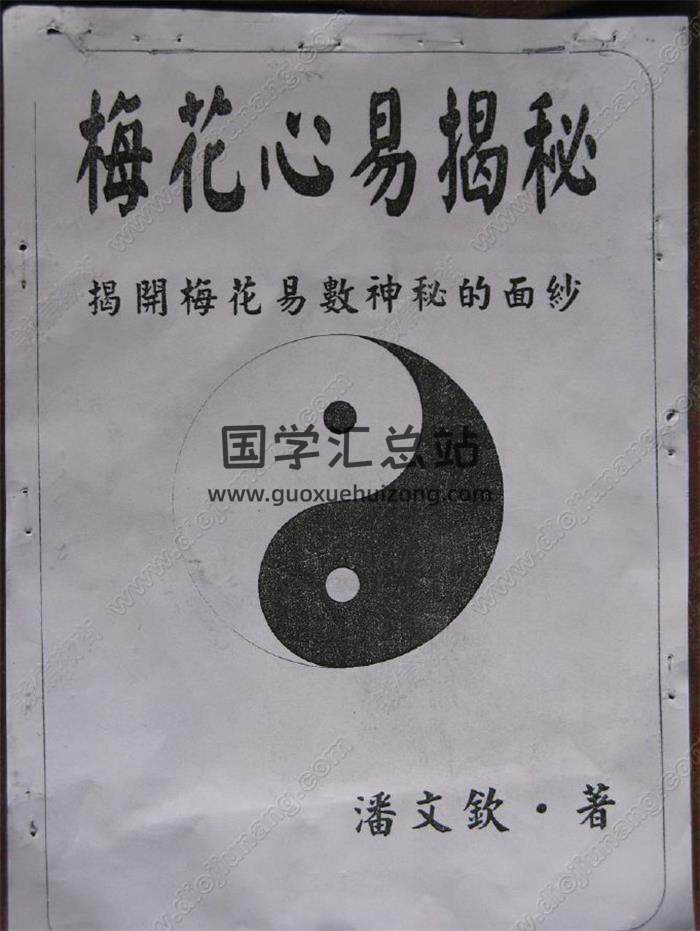 梅花心易揭秘
揭開梅花易數神秘的面紗
国学汇总站
www.guoxuehuizong.com
潘文欽·著